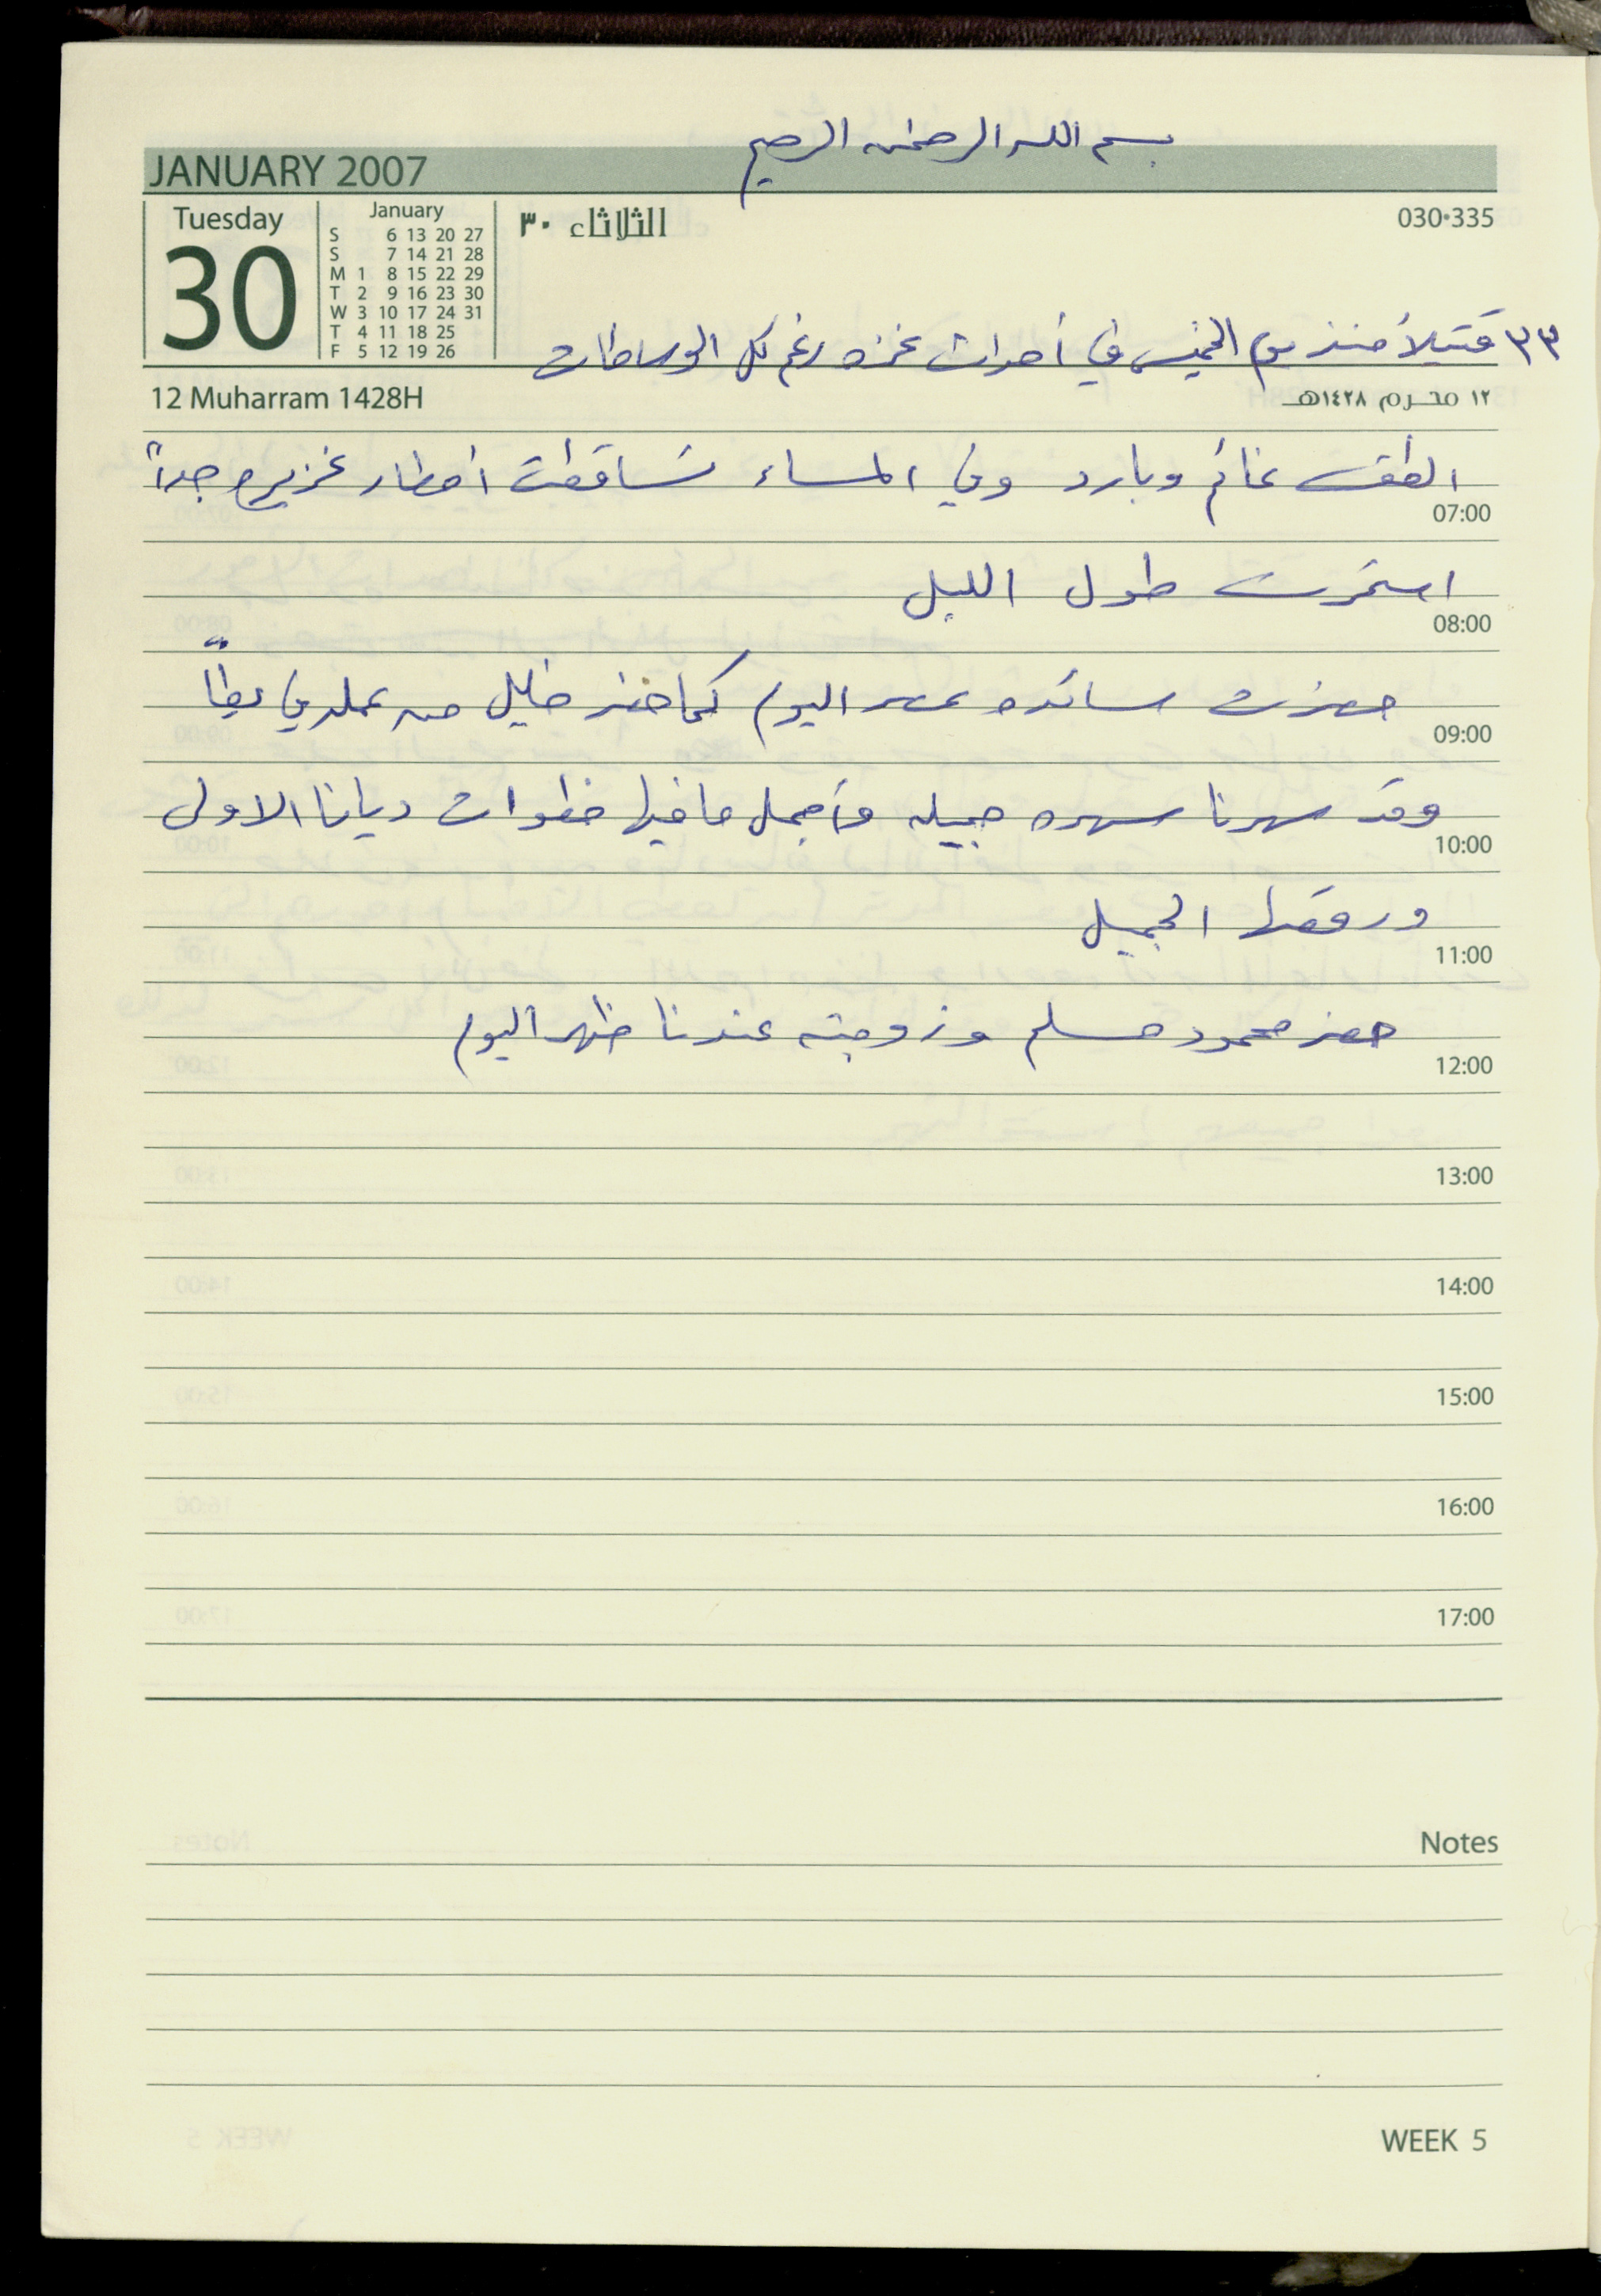 بسم الله الرحمن الرحيم
JANUARY 2007
Tuesday
30
January
S 6 13 20 27
S 7 14 21 28
M 1 8 15 22 29
T 2 9 16 23 30
W 3 10 17 24 31
T 4 11 18 25
F 5 12 19 26
الثلاثاء ٣٠
030•335
٣٣ قتيلاً منذ يوم الخميس في أحداث غزه رغم كل الوساطات
12 Muharram 1428H
١٢ محرم ١٤٢٨هـ
الطقس غائم وبارد وفي المساء تساقطت أمطار غزيره جداً
07:00
استمرت طول الليل
08:00
حضرت سائده عصر اليوم كما حضر خليل من عمله في
09:00
وقد سهرنا سهره جميله وأجمل ما فيها خطوات ديانا الاولى
10:00
ورقصها الجميل
11:00
حضر محمود مسلم وزوجته عندنا ظهر اليوم
12:00
13:00
14:00
15:00
16:00
17:00
Notes
WEEK 5